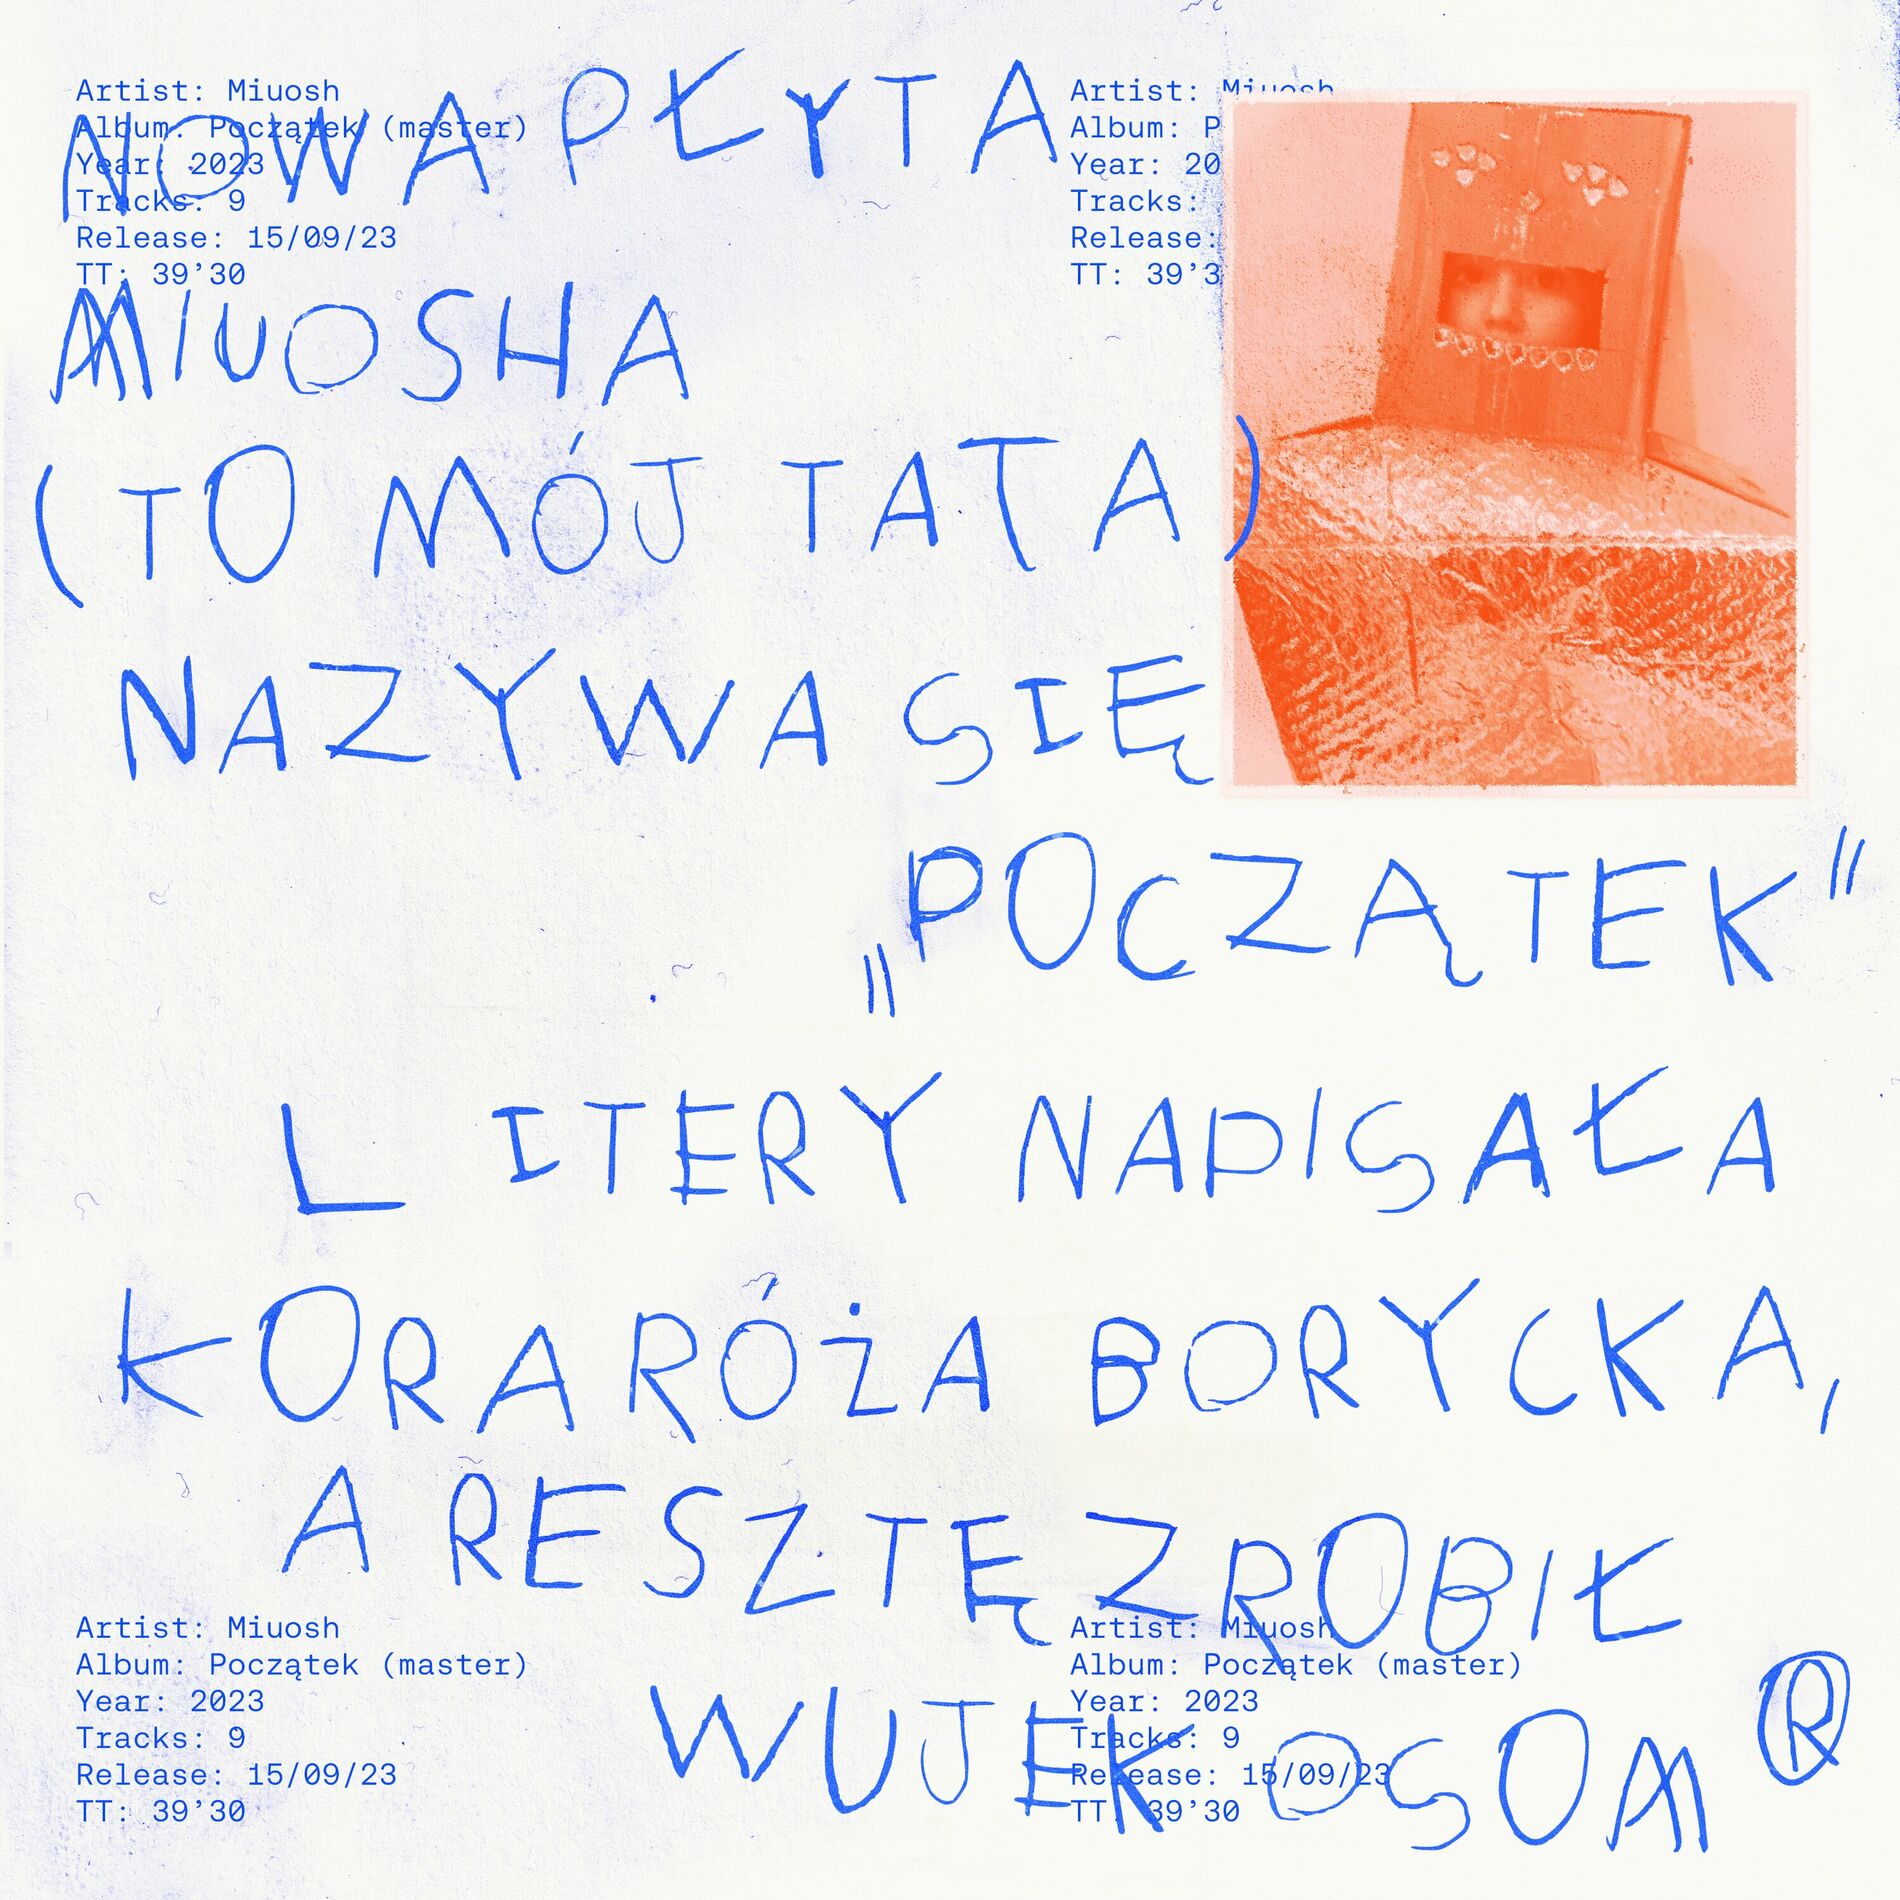 Artist: Miuosh
Album: Początek (master)
Year: 2023
Tracks: 9
Release: 15/09/23
TT: 39’30
Artist: Miuosh
Album: P
Year: 20
Tracks:
Release:
TT: 39’3
NOWA PŁYTA
MIUOSHA
(TO MÓJ TATA)
NAZYWA SIĘ
„POCZĄTEK"
LITERY NAPISAŁA
KORA RÓŻA BORYCKA,
A RESZTĘ ZROBIŁ
WUJEK OSOM ®
Artist: Miuosh
Album: Początek (master)
Year: 2023
Tracks: 9
Release: 15/09/23
TT: 39’30
Artist: Miuosh
Album: Początek (master)
Year: 2023
Tracks: 9
Release: 15/09/23
TT: 39’30